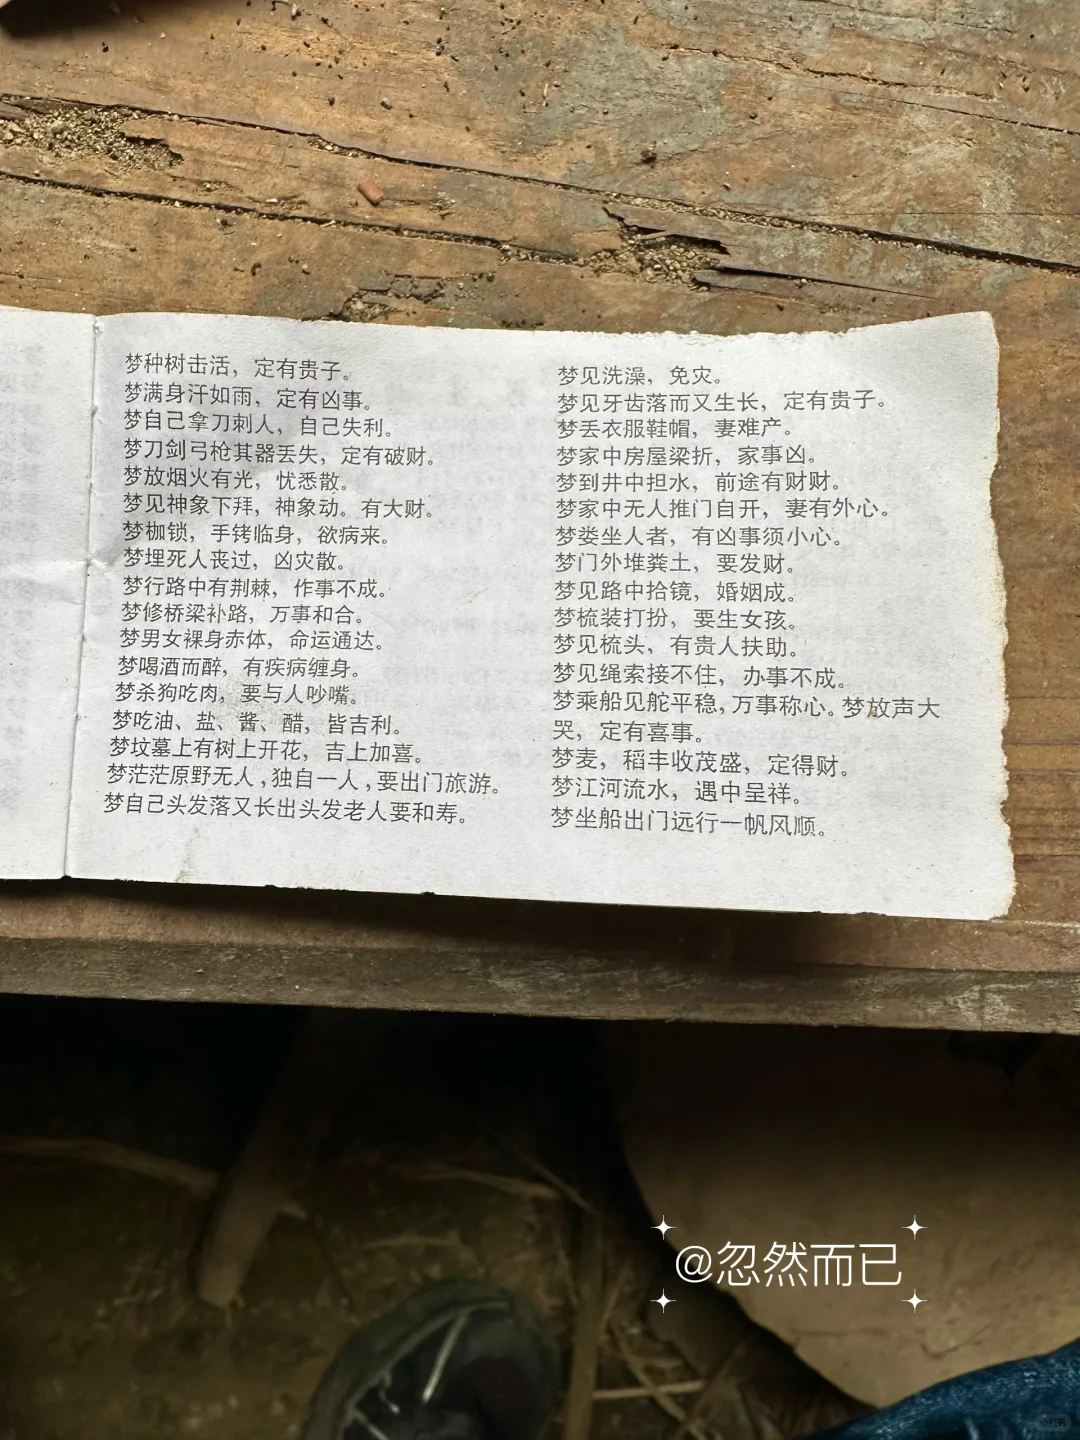 梦种树击活，定有贵子。
梦满身汗如雨，定有凶事。
梦自己拿刀刺人，自己失利。
梦刀剑弓枪其器丢失，定有破财。
梦放烟火有光，忧悉散。
梦见神象下拜，神象动。有大财。
梦枷锁，手铐临身，欲病来。
梦埋死人丧过，凶灾散。
梦行路中有荆棘，作事不成。
梦修桥梁补路，万事和合。
梦男女裸身赤体，命运通达。
梦喝酒而醉，有疾病缠身。
梦杀狗吃肉，要与人吵嘴。
梦吃油、盐、酱、醋，皆吉利。
梦坟墓上有树上开花，吉上加喜。
梦茫茫原野无人，独自一人，要出门旅游。
梦自己头发落又长出头发老人要和寿。
梦见洗澡，免灾。
梦见牙齿落而又生长，定有贵子。
梦丢衣服鞋帽，妻难产。
梦家中房屋梁折，家事凶。
梦到井中担水，前途有财财。
梦家中无人推门自开，妻有外心。
梦娄坐人者，有凶事须小心。
梦门外堆粪土，要发财。
梦见路中拾镜，婚姻成。
梦梳装打扮，要生女孩。
梦见梳头，有贵人扶助。
梦见绳索接不住，办事不成。
梦乘船见舵平稳，万事称心。梦放声大
哭，定有喜事。
梦麦，稻丰收茂盛，定得财。
梦江河流水，遇中呈祥。
梦坐船出门远行一帆风顺。
@忽然而已